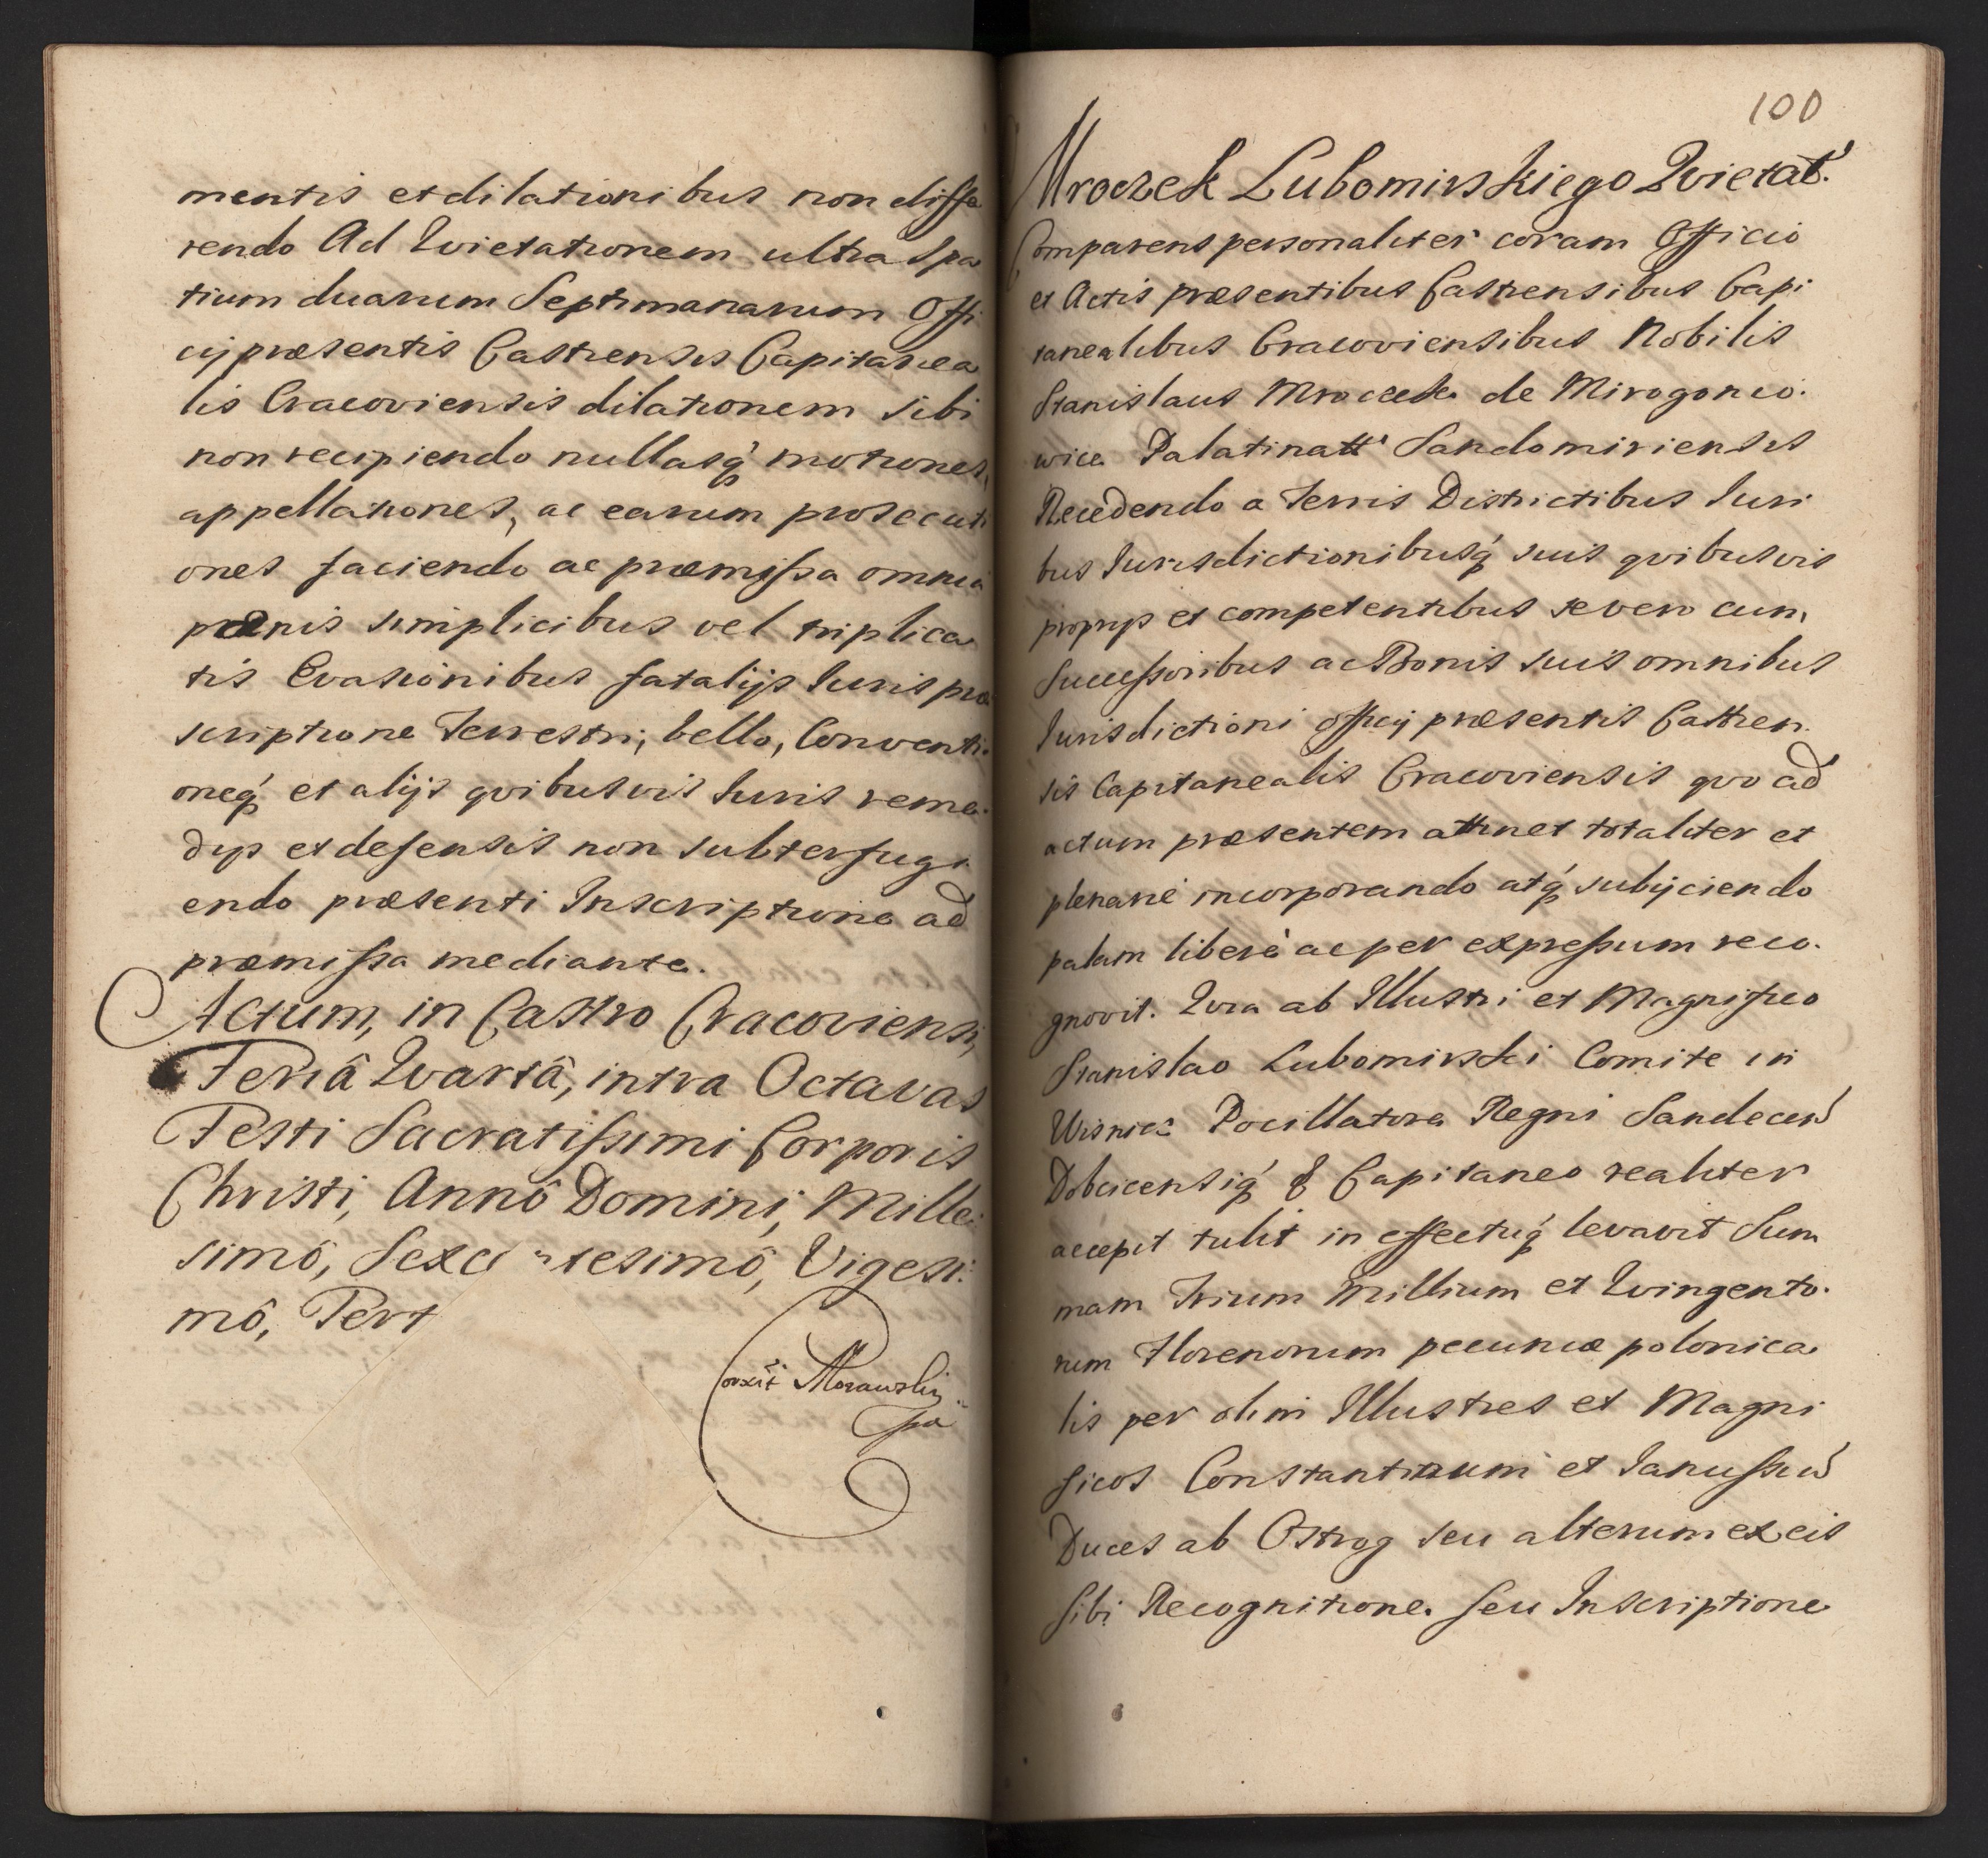 mentis et dilationibus non diffe
rendo Ad Qvietationem ultra Spa
tium duarum Septimanarum Offi
cij præsentis Castrensis Capitanea
lis Cracoviensis dilationem sibi
non recipiendo nullasq́ motiones,
appellationes, ac earum prosecuti
ones faciendo ac præmissa omnia
pœnis simplicibus vel triplica
tis Evasionibus fatalijs Iuris præ
scriptione Terrestri, bello, Conventi
oneq́ et alijs qvibusvis Iuris reme
dijs et defensis non subterfugi
endo præsenti Inscriptione ad
præmissa mediante.
Actum, in Castro Cracoviensi,
Feriâ Qvartâ, intra Octavas
Festi Sacratissimi Corporis
Christi, Annô Domini, Mille
simô, Sexc ntesimô, Vigesi
mô, Tert
Corxit Morawski
100
Mroczek Lubomirskiego Qvietat.
Comparens personaliter coram Officio
et Actis præsentibus Castrensibus Capi
tanealibus Cracoviensibus Nobilis
Stanislaus Mroczek de Mirogonio
wice Palatinatt Sandomiriensis
Recedendo a Terris Districtibus Iuri
bus Iurisdictionibusq́ suis qvibusvis
proprijs et competentibus se vero cum
Successoribus ac Bonis suis omnibus
Iurisdictioni officij præsentis Castren
sis Capitanealis Cracoviensis qvo ad
actum præsentem attinet totaliter et
plenariè incorporando atq́ subijciendo
palam liberè ac per expressum reco
gnovit. Qvia ab Illustri et Magnifico
Stanislao Lubomirski Comite in
Wisnicz Pocillatore Regni Sandecen
Dobcicensiq́ & Capitaneo realiter
accepit tulit in effectuq́ levavit Sum
mam Trium Millium et Qvingento
rum Florenorum pecuniæ polonica
lis per olim Illustres et Magni
ficos Constantinum et Ianussium
Duces ab Ostrog seu alterum ex eis
sibi Recognitione seu Inscriptione